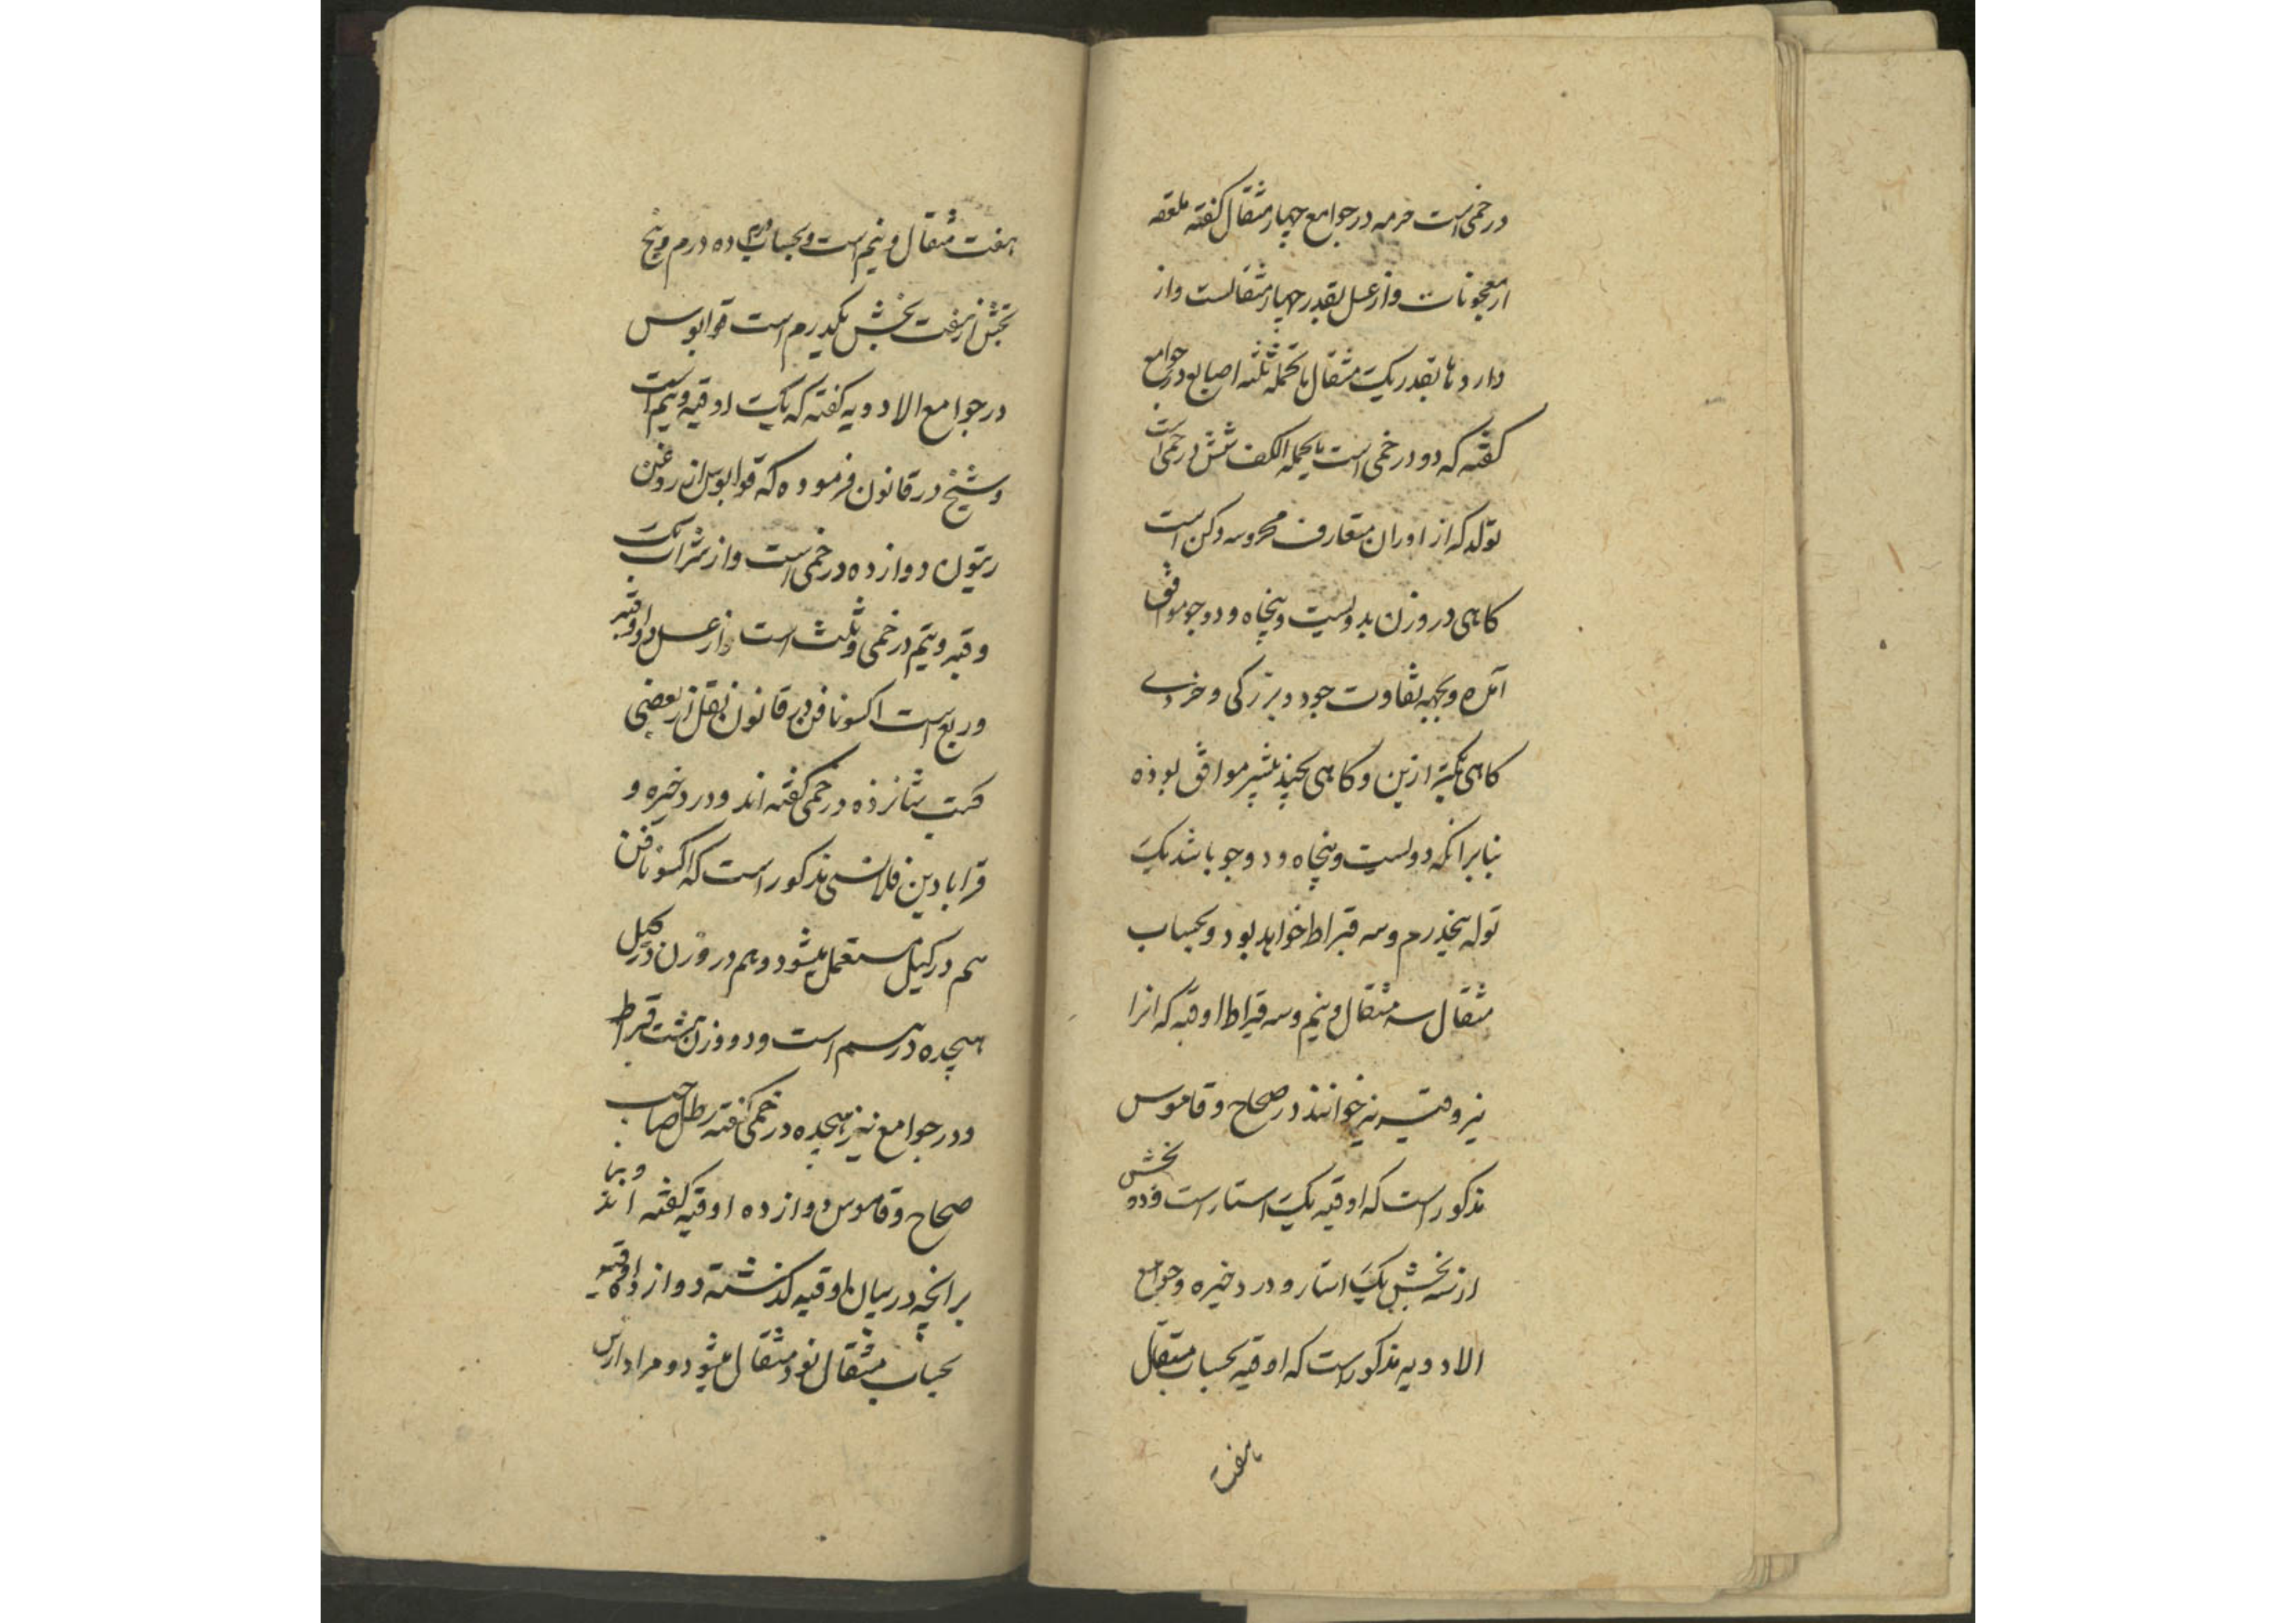 درخمی است حرمه در جوامع چهار مثقال گفته ملعقه
از معجونات و از عسل بقدر چهار مثقالست و از
داروها بقدر یک مثقال ما تحمله ثلثه اصابع در جوامع
گفته که دو درخمی است ما یحمله الکف شش درخمی است
توله که از اوزان متعارف محروسه دکن است
کاهی در وزن بدویست و پنجاه و دو جو موافق
آمده و بجهه تفاوت جو در بزرکی و خردی
کاهی بکمتر ازین و کاهی بچیزی بیشتر موافق بوده
بنابر انکه دویست و پنجاه و دو جو باشد یک
توله پنجدرم و سه قیراط خواهد بود و بحساب
مثقال سه مثقال و نیم و سه قیراط اوقیه که انرا
نیز وقیه نیز خوانند در صحاح و قاموس
مذکور است که اوقیه یک استار است و دو بخش
از سه بخش یک استار و در ذخیره و جوامع
الادویه مذکور است که اوقیه بحساب مثقال
هفت
هفت مثقال و نیم است و بحساب درم ده درم و پنج
بخش از هفت بخش یکدرم است قوابوس
در جوامع الادویه گفته که یک اوقیه و نیم است
و شیخ در قانون فرموده که قوابوس از روغن
زیتون دوازده درخمی است و از شراب یک
وقیه و نیم درخمی و ثلث است و از عسل دو اوقیه
و ربع است اکسونافن در قانون نقل از بعضی
شانزده درخمی گفته اند و در ذخیره و
قرابادین قلانسی مذکور است که اکسونافن
هم در کیل مستعمل میشود و هم در وزن در کیل
هیجده درهم است و در وزن هشت قیراط
و در جوامع نیز هیجده درخمی گفته رطل صاحب
صحاح و قاموس دوازده اوقیه گفته اند و بنا
بر انچه در بیان اوقیه گذشته دوازده اوقیه
بحساب مثقال نود مثقال میشود و مراد از